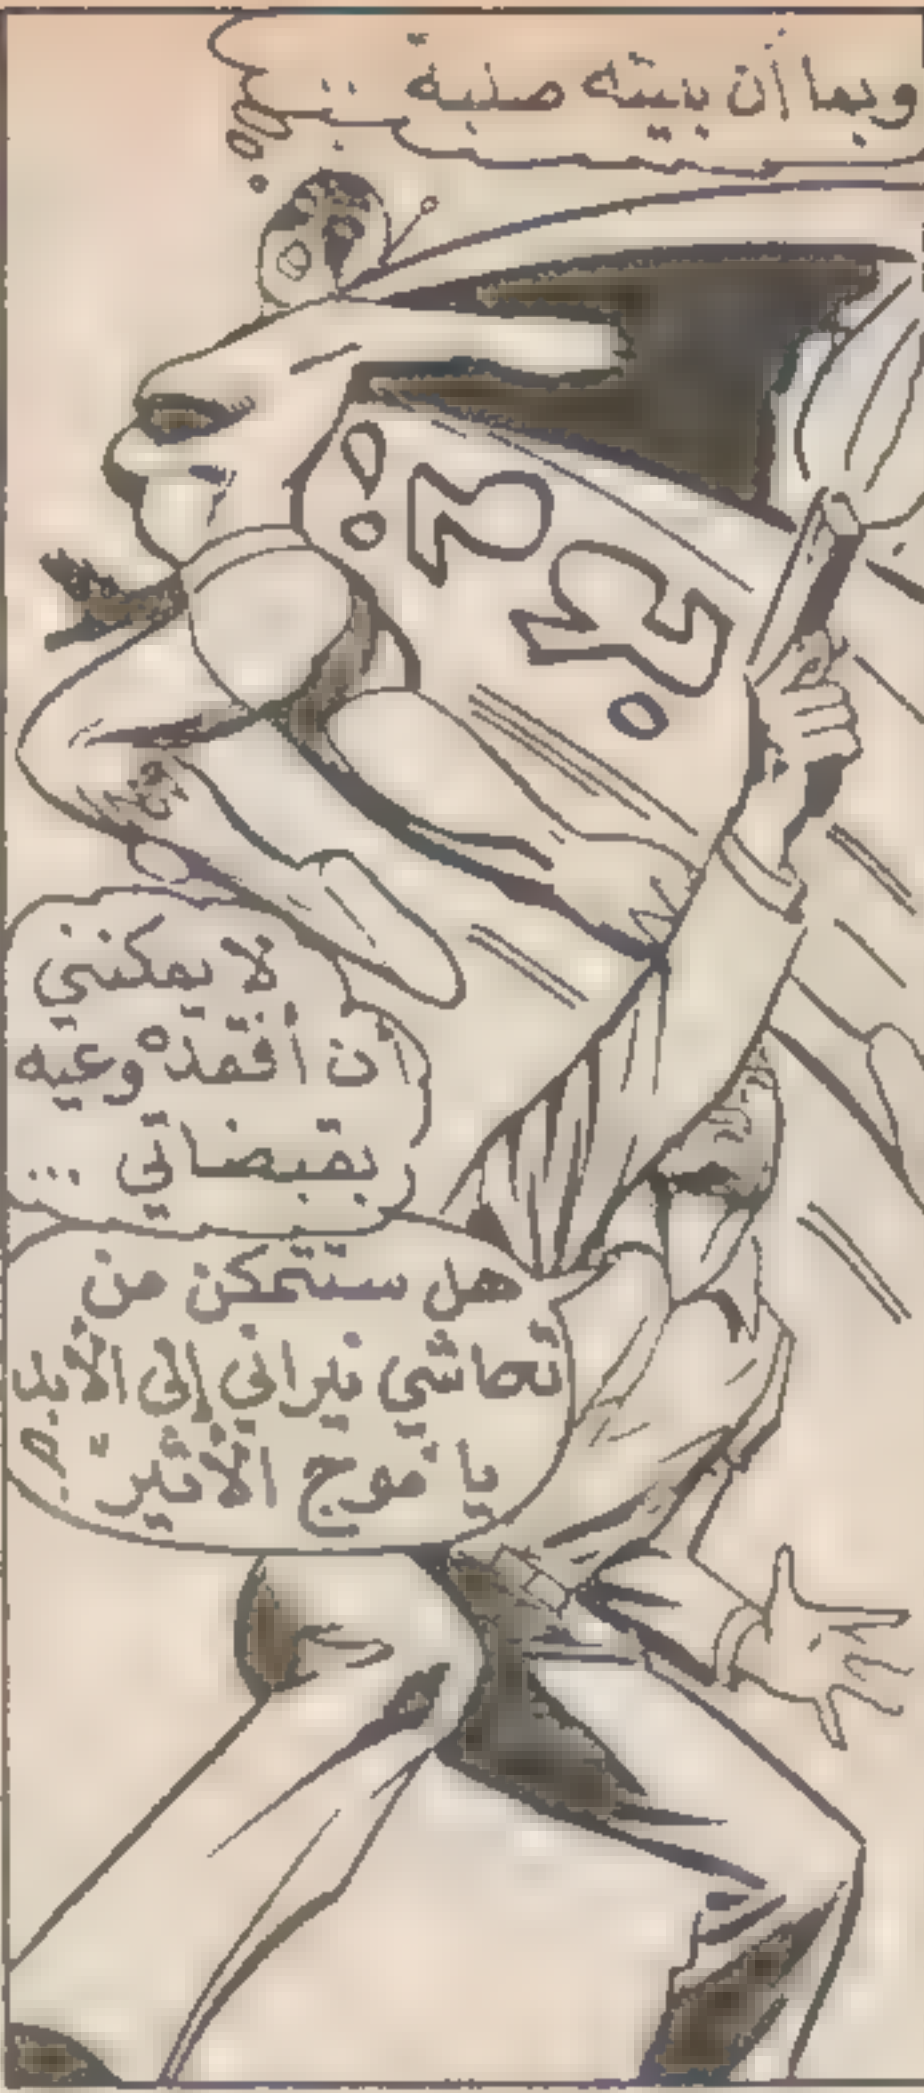 وبما أن بنيته صلبة ..
لا يمكنني
أن أفقده وعيه
بقبضاتي ...
هل ستتمكن من
تحاشي نيراني إلى الأبد
يا "موج الأثير" ؟!